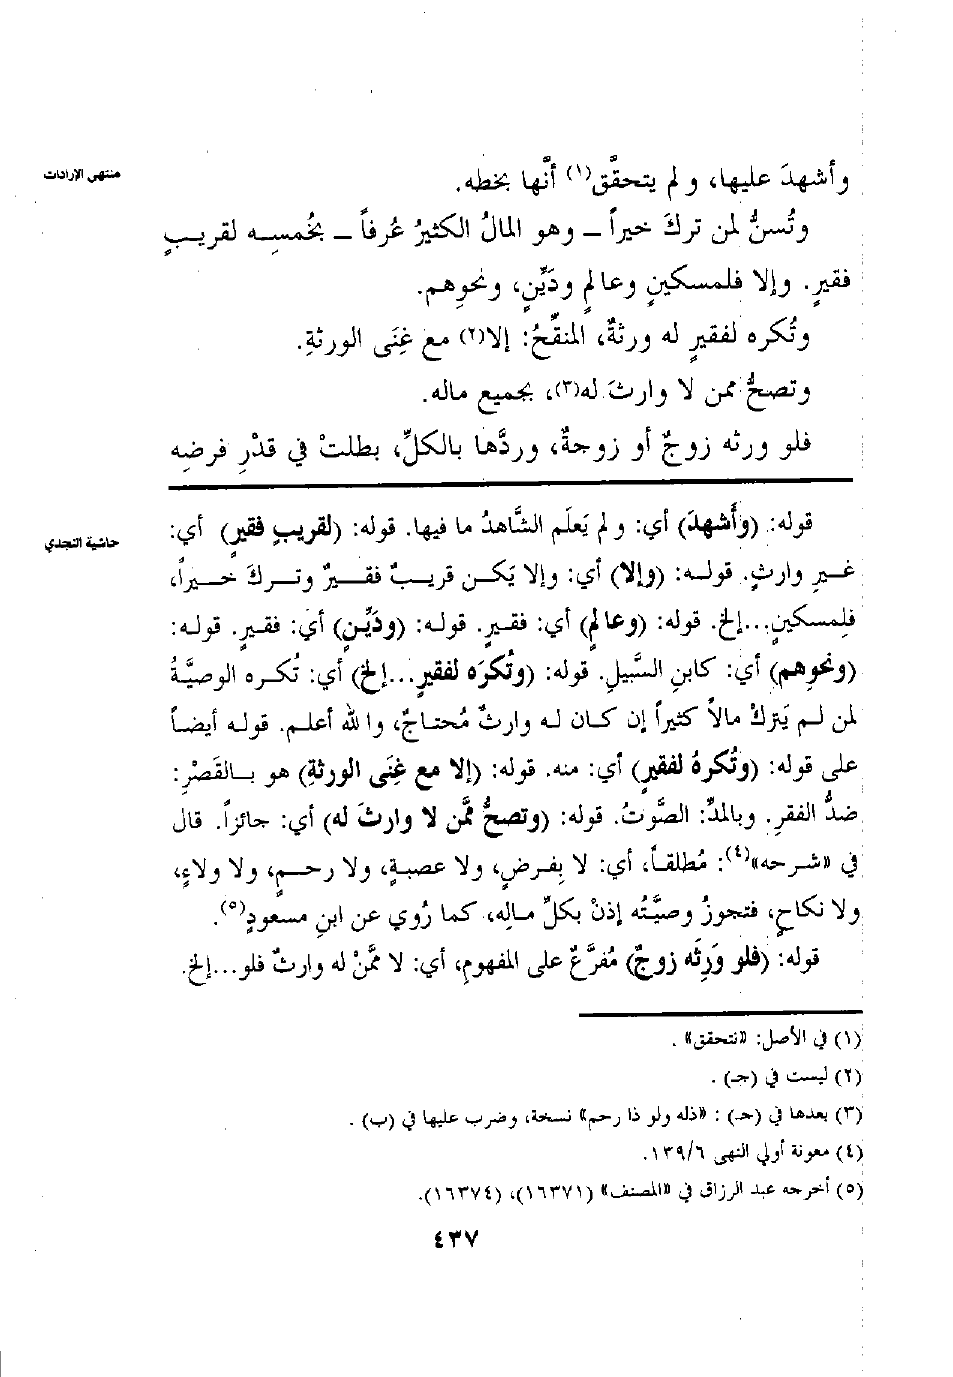 منتهى الإرادات
وأشهدَ عليها، و لم يتحقَّق(١) أنَّها بخطه.
وتُسنُّ لمن تركَ خيراً ــ وهو المالُ الكثيرُ عُرفاً ــ بخُمسِه لقريبٍ
فقيرٍ. وإلا فلمسكينٍ وعالمٍ ودَيِّنٍ، ونحوِهم.
وتُكره لفقيرٍ له ورثةٌ، المنقِّحُ: إلا(٢) مع غِنَى الورثةِ.
وتصحُّ ممن لا وارثَ له(٣)، بجميع ماله.
فلو ورثه زوجٌ أو زوجةٌ، وردَّها بالكلِّ، بطلتْ في قدْرِ فرضِه
حاشية النجدي
قوله: (وأَشهدَ) أي: و لم يَعلَم الشَّاهدُ ما فيها. قوله: (لقريبٍ فقيرٍ) أي:
غيرِ وارثٍ. قوله: (وإلا) أي: وإلا يَكن قريبٌ فقيرٌ وتركَ خيراً،
فلِمسكينٍ...إلخ. قوله: (وعالمٍ) أي: فقيرٍ. قوله: (ودَيِّنٍ) أي: فقيرٍ. قوله:
(ونحوِهم) أي: كابنِ السَّبيلِ. قوله: (وتُكرَه لفقيرٍ...إلخ) أي: تُكره الوصيَّةُ
لمن لم يَتركْ مالاً كثيراً إن كان له وارثٌ مُحتاجٌ، والله أعلم. قوله أيضاً
على قوله: (وتُكرهُ لفقيرٍ) أي: منه. قوله: (إلا مع غِنَى الورثةِ) هو بالقَصْرِ:
ضدُّ الفقرِ. وبالمدِّ: الصَّوتُ. قوله: (وتصحُّ ممَّن لا وارثَ له) أي: جائزاً. قال
في «شرحه»(٤): مُطلقاً، أي: لا بِفرضٍ، ولا عصبةٍ، ولا رحمٍ، ولا ولاءٍ،
ولا نكاحٍ، فتجوزُ وصيَّتُه إذنْ بكلِّ مالِه، كما رُوي عن ابنِ مسعودٍ(٥).
قوله: (فلو وَرِثَه زوجٌ) مُفرَّعٌ على المفهومِ، أي: لا ممَّنْ له وارثٌ فلو...إلخ.
(١) في الأصل: «نتحقق» .
(٢) ليست في (جـ) .
(٣) بعدها في (جـ) : «ذله ولو ذا رحم» نسخة، وضرب عليها في (ب) .
(٤) معونة أولي النهى ١٣٩/٦.
(٥) أخرجه عبد الرزاق في «المصنف» (١٦٣٧١)، (١٦٣٧٤).
٤٣٧